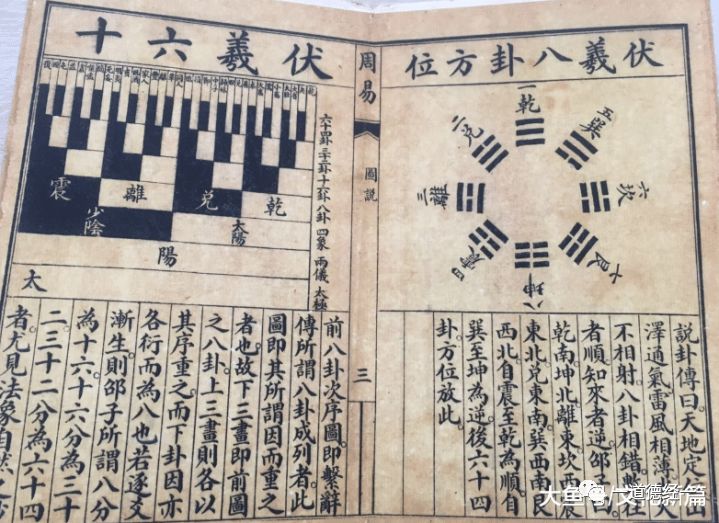 伏羲八卦方位
一乾
二兌
三離
四震
五巽
六坎
七艮
八坤
說卦傳曰天地定
澤通氣雷風相薄
不相射八卦相錯數往
者順知來者逆邵
乾南坤北離東坎西震
東北兌東南巽西南艮
西北自震至乾為順自
巽至坤為逆後六十四
卦方位放此
周易
圖說
三
伏羲六十
六十四卦 三十二卦 十六卦 八卦 四象 兩儀 太極
乾 兌 離 震
太陽 少陰
陽
太
前八卦次序圖即繫辭
傳所謂八卦成列者此
圖即其所謂因而重之
者也故下三畫即前圖
之八卦上三畫則各以
其序重之而下卦因亦
各衍而為八也若逐爻
漸生則邵子所謂八分
為十六十六分為三十
二三十二分為六十四
者尤見法象自然之妙
大鱼号 / 文化新篇
道德经